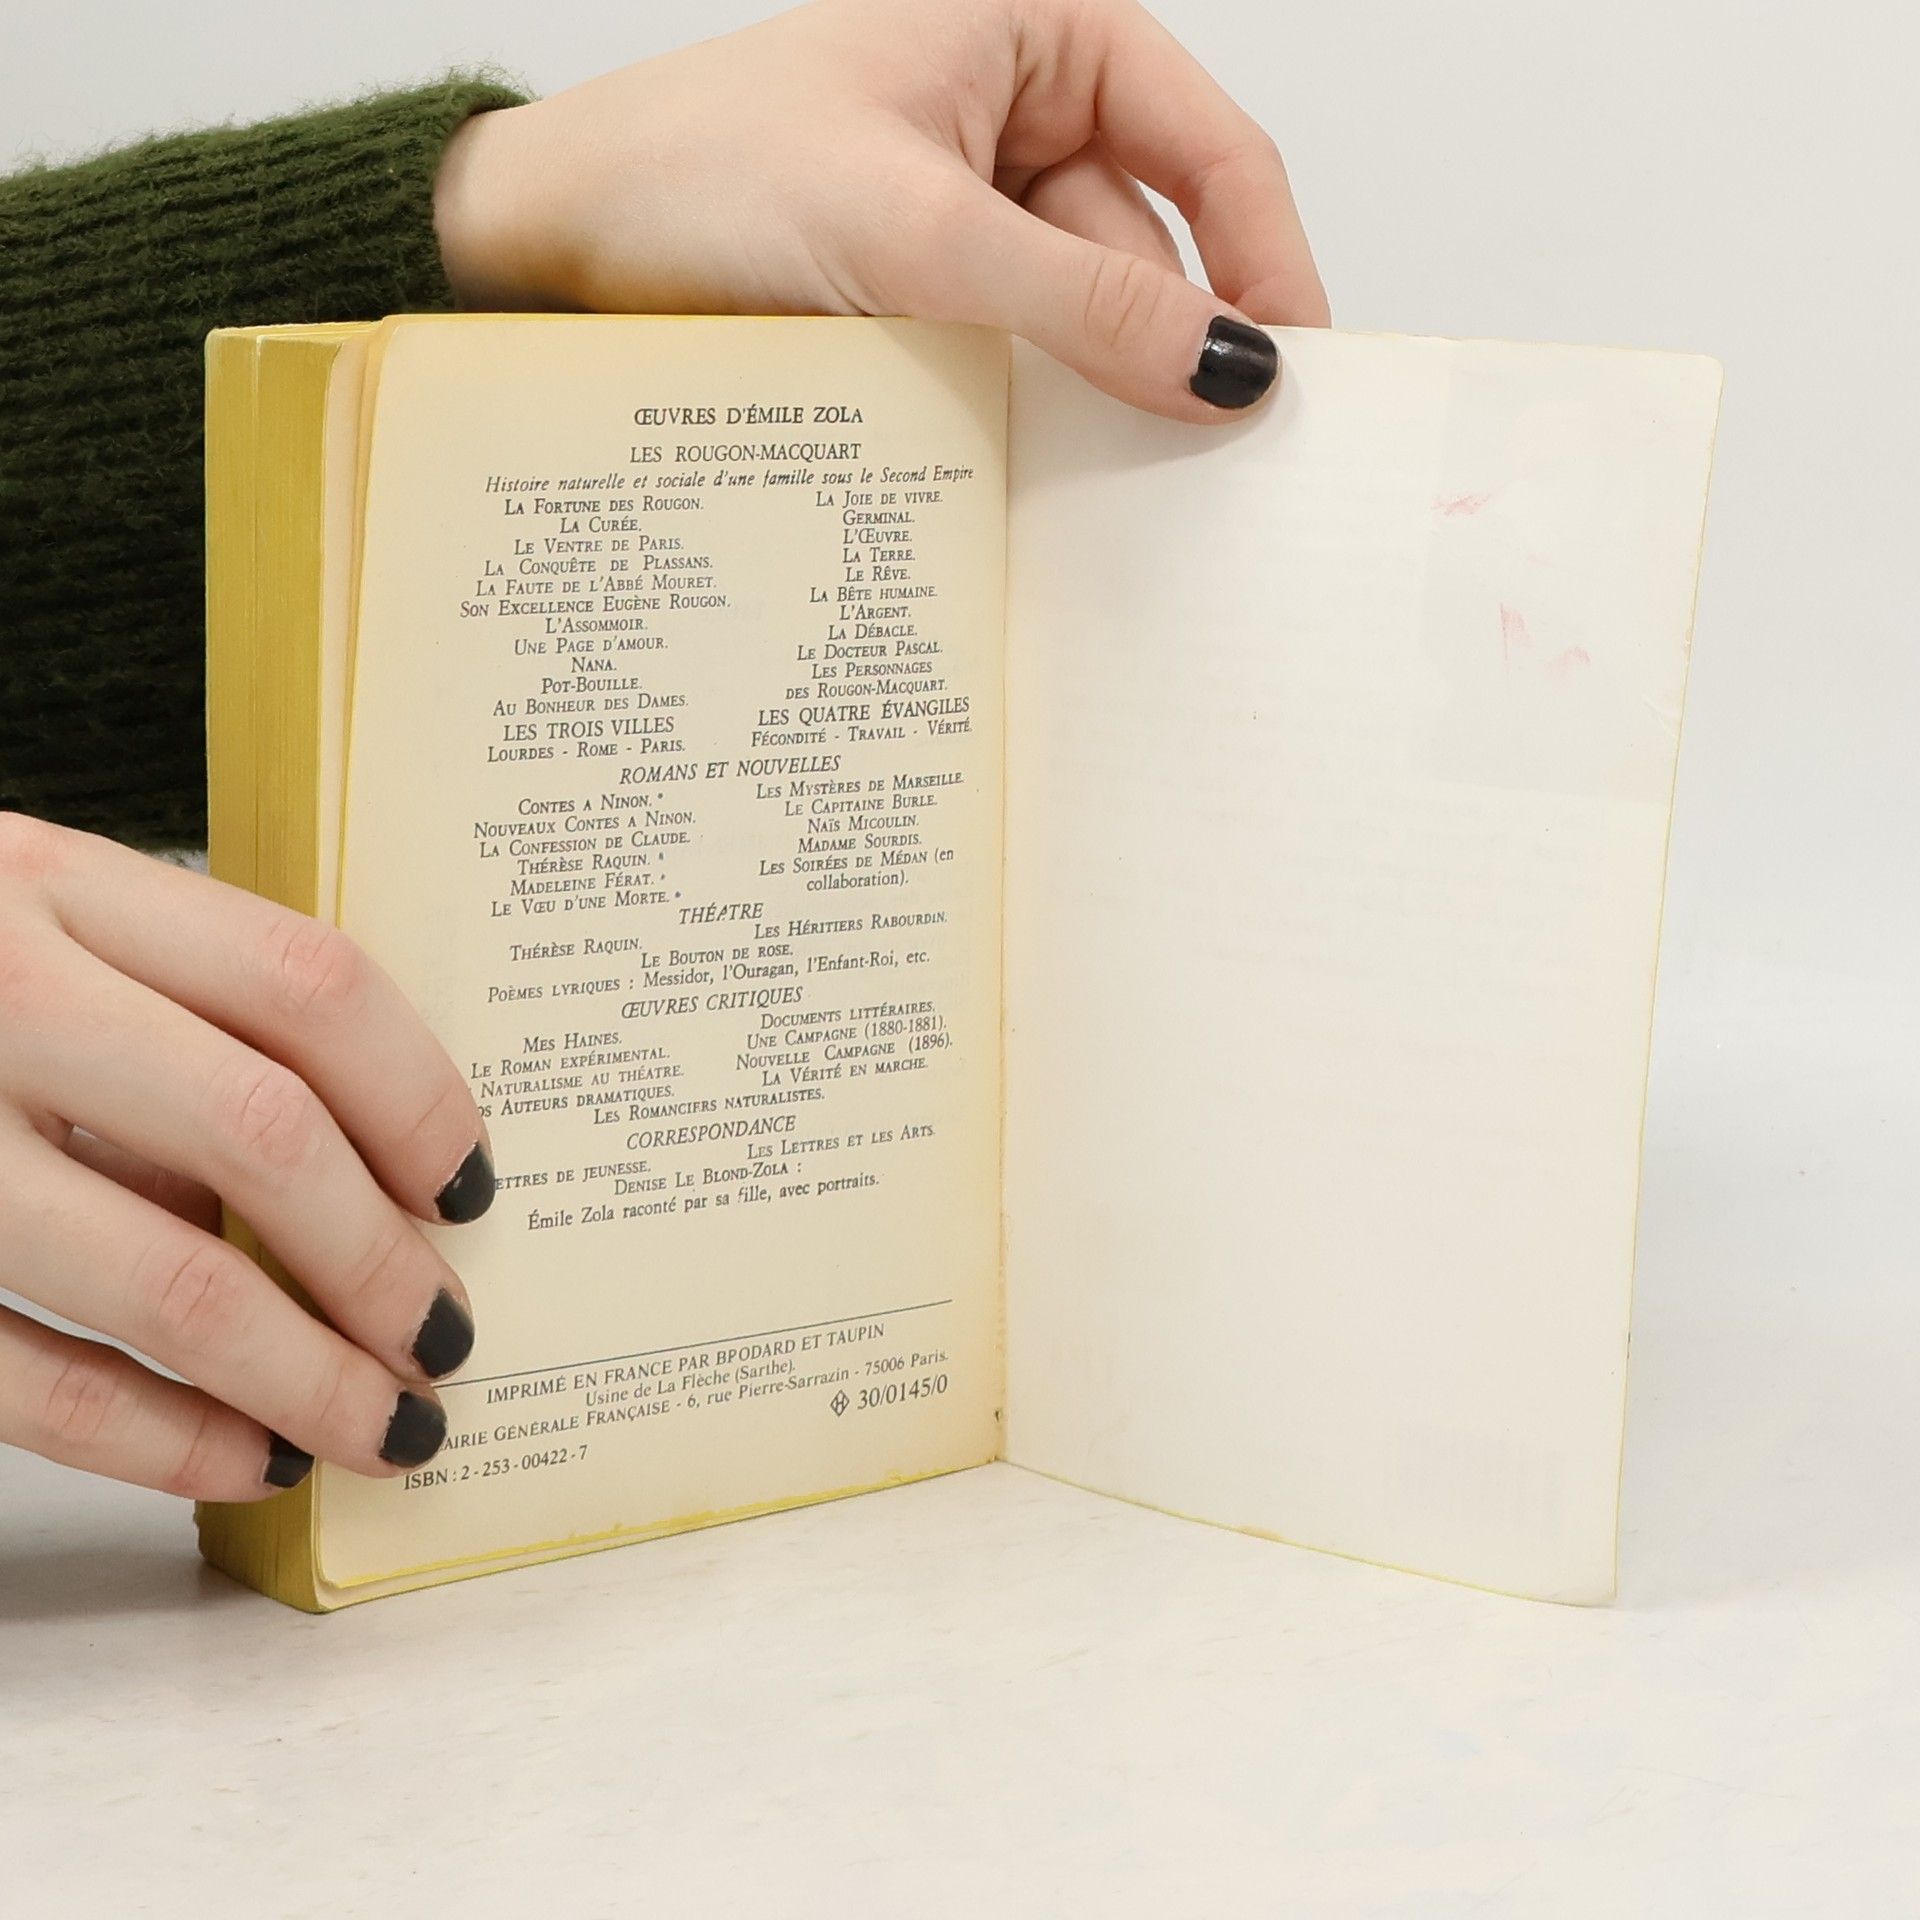 ŒUVRES D'ÉMILE ZOLA
LES ROUGON-MACQUART
Histoire naturelle et sociale d'une famille sous le Second Empire
LA FORTUNE DES ROUGON.
LA CURÉE.
LE VENTRE DE PARIS.
LA CONQUÊTE DE PLASSANS.
LA FAUTE DE L'ABBÉ MOURET.
SON EXCELLENCE EUGÈNE ROUGON.
L'ASSOMMOIR.
UNE PAGE D'AMOUR.
NANA.
POT-BOUILLE.
AU BONHEUR DES DAMES.
LA JOIE DE VIVRE.
GERMINAL.
L'ŒUVRE.
LA TERRE.
LE RÊVE.
LA BÊTE HUMAINE.
L'ARGENT.
LA DÉBACLE.
LE DOCTEUR PASCAL.
LES PERSONNAGES
DES ROUGON-MACQUART.
LES TROIS VILLES
LOURDES - ROME - PARIS.
LES QUATRE ÉVANGILES
FÉCONDITÉ - TRAVAIL - VÉRITÉ.
ROMANS ET NOUVELLES
CONTES A NINON. *
NOUVEAUX CONTES A NINON.
LA CONFESSION DE CLAUDE.
THÉRÈSE RAQUIN. *
MADELEINE FÉRAT. *
LE VŒU D'UNE MORTE. *
LES MYSTÈRES DE MARSEILLE.
LE CAPITAINE BURLE.
NAÏS MICOULIN.
MADAME SOURDIS.
LES SOIRÉES DE MÉDAN (en
collaboration).
THÉATRE
THÉRÈSE RAQUIN.
LES HÉRITIERS RABOURDIN.
LE BOUTON DE ROSE.
POÈMES LYRIQUES : Messidor, l'Ouragan, l'Enfant-Roi, etc.
ŒUVRES CRITIQUES
MES HAINES.
LE ROMAN EXPÉRIMENTAL.
NATURALISME AU THÉATRE.
OS AUTEURS DRAMATIQUES.
DOCUMENTS LITTÉRAIRES.
UNE CAMPAGNE (1880-1881).
NOUVELLE CAMPAGNE (1896).
LA VÉRITÉ EN MARCHE.
LES ROMANCIERS NATURALISTES.
CORRESPONDANCE
ETTRES DE JEUNESSE.
LES LETTRES ET LES ARTS.
DENISE LE BLOND-ZOLA :
Émile Zola raconté par sa fille, avec portraits.
IMPRIMÉ EN FRANCE PAR BPODARD ET TAUPIN
Usine de La Flèche (Sarthe).
AIRIE GÉNÉRALE FRANÇAISE - 6, rue Pierre-Sarrazin - 75006 Paris.
ISBN : 2 - 253 - 00422 - 7
H 30/0145/0